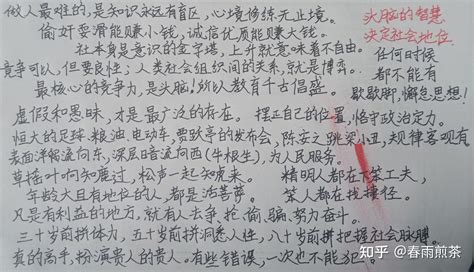 做人最难的，是知识永远有盲区，心境修练无止境。
偷奸耍滑能赚小钱，诚信优质能赚大钱。
头脑的智慧
决定社会地位
社本身是意识的金字塔，上升就意味着不自由。
任何时候
竞争可以，但要良性；人类社会组织间的关系，就是博弈。
都不能有
最核心的竞争力，是头脑！所以教育千古倡盛。
歇歇脚，懈怠思想！
虚假和愚昧，才是最广泛的存在。 摆正自己的位置，恪守政治定力。
恒大的足球、粮油、电动车，贾跃亭的发布会，陈安之跳梁小丑，规律客观有
表面洋溢流向东，深层暗流向西（牛根生），为人民服务。
草摇叶响知鹿过，松声一起知虎来。 精明人都在下笨工夫，
年龄大且有地位的人，都是活菩萨。 笨人都在找捷径。
凡是有利益的地方，就有人去争、抢、偷、骗、努力奋斗。
三十岁前拼体力，五十岁前拼洞悉人性，八十岁前拼把握社会脉膊。
真的高手，扮演贵人的贵人。有些错误，一次也不能犯。
知乎 @春雨煎茶